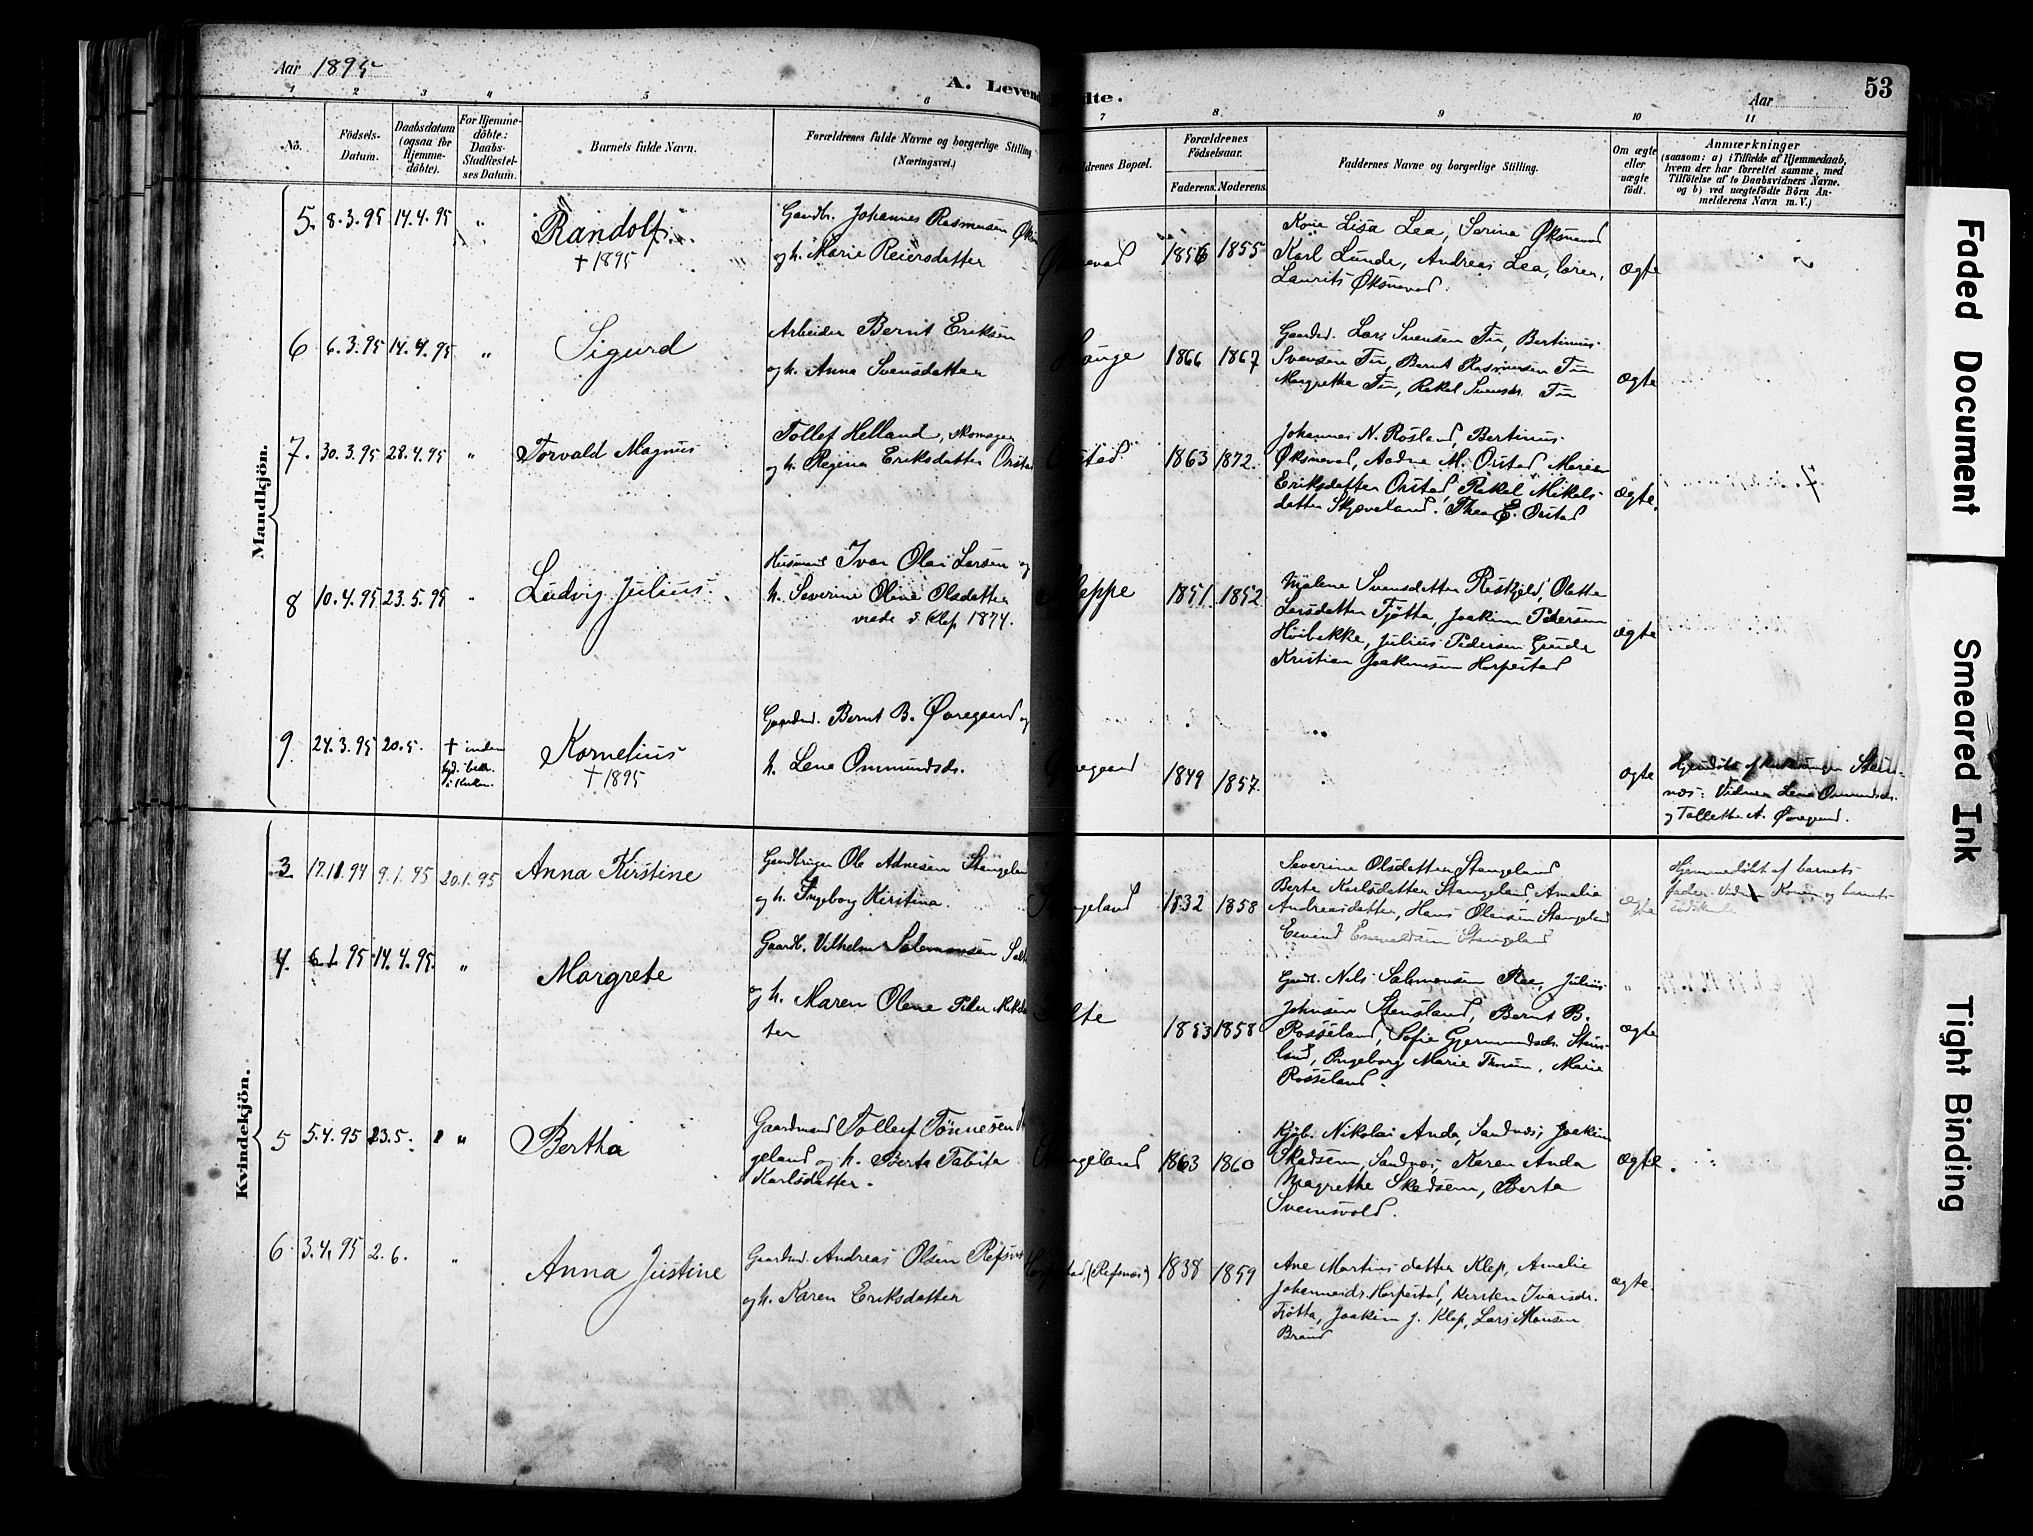 Aar 1895
A. Levende
dte.
Aar
53
1 2 3 4 5 6 7 8 9 10 11
No.
Födsels-
Datum.
Daabsdatum
(ogsaa for
Hjemme-
döbte).
For Hjemme-
döbte:
Daabs-
Stadfæstel-
ses Datum.
Barnets fulde Navn.
Forældrenes fulde Navne og borgerlige Stilling
(Næringsvei.)
ldrenes Bopæl.
Forældrenes
Födselsaar.
Faderens. Moderens.
Faddernes Navne og borgerlige Stilling.
Om ægte
eller
uægte
født.
Anmærkninger
(saasom: a) i Tilfælde af Hjemmedaab,
hvem der har forrettet samme, med
Tilföielse af to Daabsvidners Navne.
og b) ved uægtefödte Börn An-
melderens Navn m.V.)
Mandkjön.
5. 8.3.95 14.4.95 "
Randolf
† 1895
Gaardbr. Johannes Rasmusen
og h. Marie Reiersdatter
1856 1855
Kone Lisa Lea, Sorine Øksnevad
Karl Lunde, Andreas Lea,
Laurits Øksnevad.
ægte
6 6.3.95 14.4.95 "
Sigurd
Arbeider Bernt Eriksen
og h. Anna Svensdatter
1866 1867
Gaardbr. Lars Svensen Tu, Bertinius
Svensen Tu, Bernt Rasmusen Tu
Margrethe Tu, Rakel Svensdr. Tu
ægte
7. 30.3.95 28.4.95 "
Torvald Magnus
Tollef Helland, skomager
og h. Regina Eriksdatter Orstad
1863 1872.
Johannes N. Rosland, Bertinius
Øksnevad, Aadne M. Orstad Maren
Eriksdatter Orstad, Rakel Mikals-
datter Skjæveland. Thea E. Orstad
ægte.
8 10.4.95 23.5.95 "
Ludvig Julius.
Husmand Ivar Olai Larsen og
h. Severine Oline Olsdatter
viede i Klep 1874.
eppe
1851. 1852.
Malene Svensdatter Reskjeld, Olette
Larsdatter Tjötta, Joakim Pedersen
Hoibakke, Julius Pedersen Grude
Kristian Joakimsen Horpestad
ægte
9. 24.3.95 20.5.
† inden
Kornelius
† 1895
Gaardmd. Bernt B. Øvregaard og
h. Lena Ommundsdr.
regaard
1849 1857.
ægte
Stens-
næs: Vidner Lena Ommundsdr.
og Tollette A. Øvregaard.
Kvindekjön.
3. 17.11.94 9.1.95 20.1.95
Anna Kirstine
Gaardbruger Ole Adnesen Stangeland
og h. Ingeborg Kirstina.
geland
1832 1858
Severine Olsdatter Stangeland
Berte Karlsdatter Stangeland, Amalie
Andreasdatter, Hans Olausen Stangeland
Eivind Enevaldsen Stangeland
ægte
Hjemmedøbt af barnets
fader. Vidn. Konen og barnets
4. 6.1.95 14.4.95. "
Margrete
Gaardb. Vilhelm Salomonsen
og h. Maren Olene
ter
lte
1853 1858
Gaardb. Nils Salomonsen Ree, Julius
Johnsen Stensland, Bernt B.
Rosseland, Sofie Gjermundsdr. Stens-
land, Ingeborg Marie Thorsen, Marie
Rosseland.
ægte
5 5.4.95 23.5. "
Bertha
Gaardmand Tollef Tönnesen
geland og h. Berta Tabita
Karlsdatter.
Stangeland
1863 1860
Kjøb. Nikolai Anda, Sandnæs, Joakim
Skadsem, Sandnæs, Karen Anda
Magrethe Skadsem, Berta
Svensvold.
ægte.
6 3.4.95 2.6. "
Anna Justine
Gaardmd. Andreas Olsen Refsnæs
og h. Karen Eriksdatter
Horpestad (Refsnæs)
1838 1859
Ane Martinsdatter Klep, Amalie
Johannesdr. Horpestad, Kirsten Ivarsdr.
Tjøtta, Joakim J. Klep, Lars Monsen
Braud
ægte.
Faded Document
Smeared Ink
Tight Binding